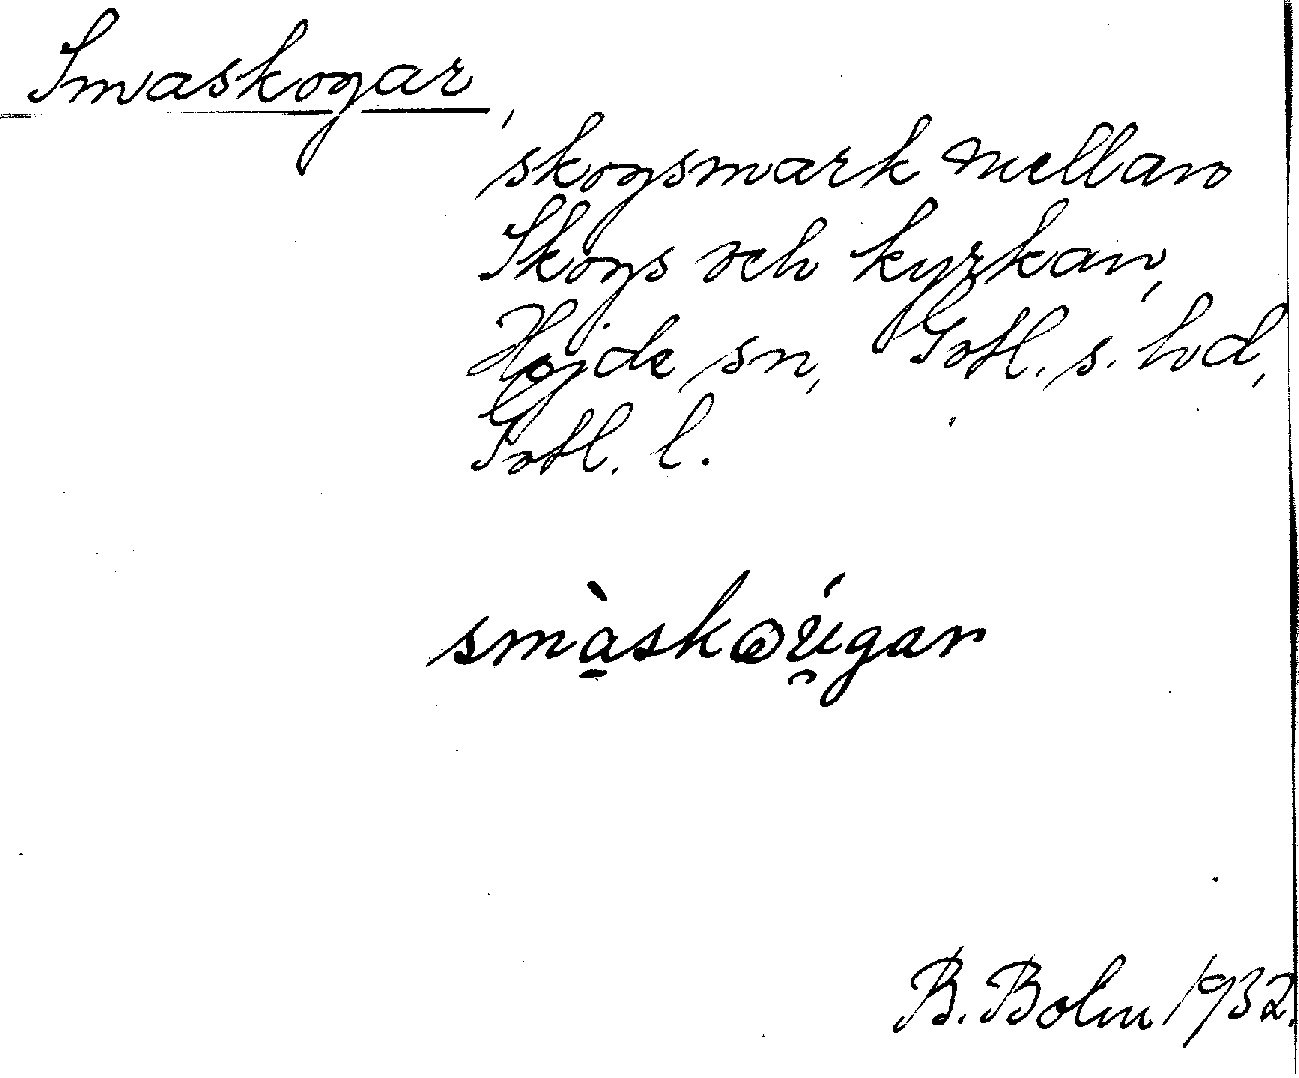 Smaskogar,
skogsmark mellan
Skogs och kyrkan,
Hejde sn, Gotl. s. hd,
Gotl. l.
smàskǫú̯gar
B. Bolin 1932.